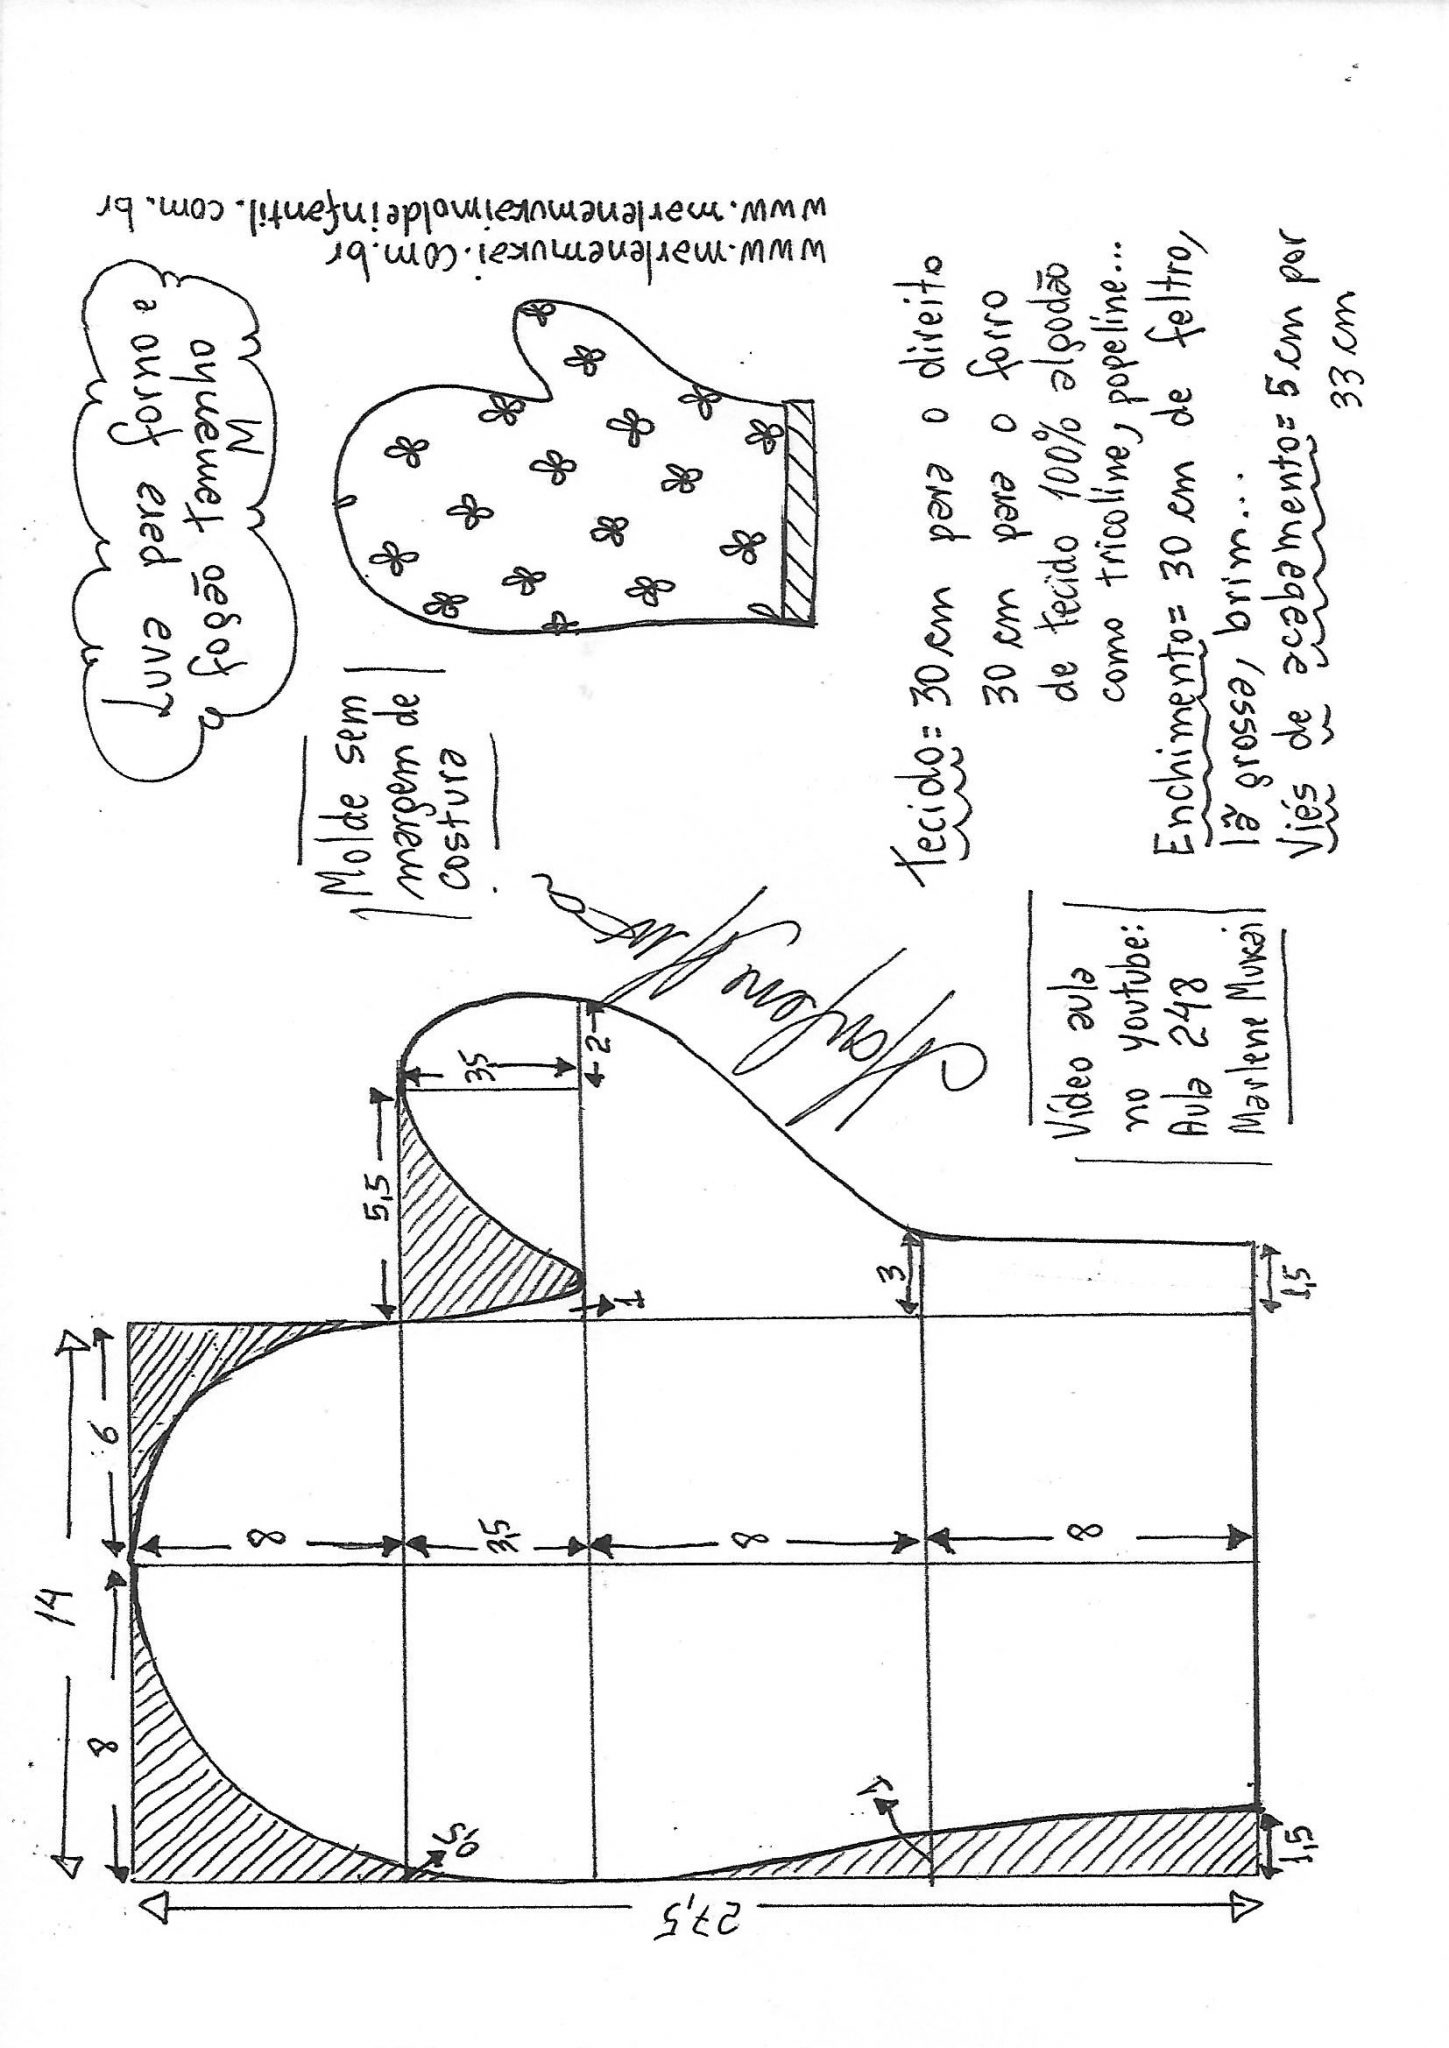 Luva para forno e
fogão tamanho
M
www.marlenemukai.com.br
www.marlenemukaimoldeinfantil.com.br
Molde sem
margem de
costura
Marlene Mukai
Tecido= 30 cm para o direito
30 cm para o forro
de tecido 100% algodão
como tricoline, popeline...
Enchimento= 30 cm de feltro,
lã grossa, brim...
Viés de acabamento= 5 cm por
33 cm
Vídeo aula
no youtube:
Aula 248
Marlene Mukai
14
8
6
27,5
8
3,5
8
8
5,5
3,5
2
1
3
1,5
0,5
1
1,5